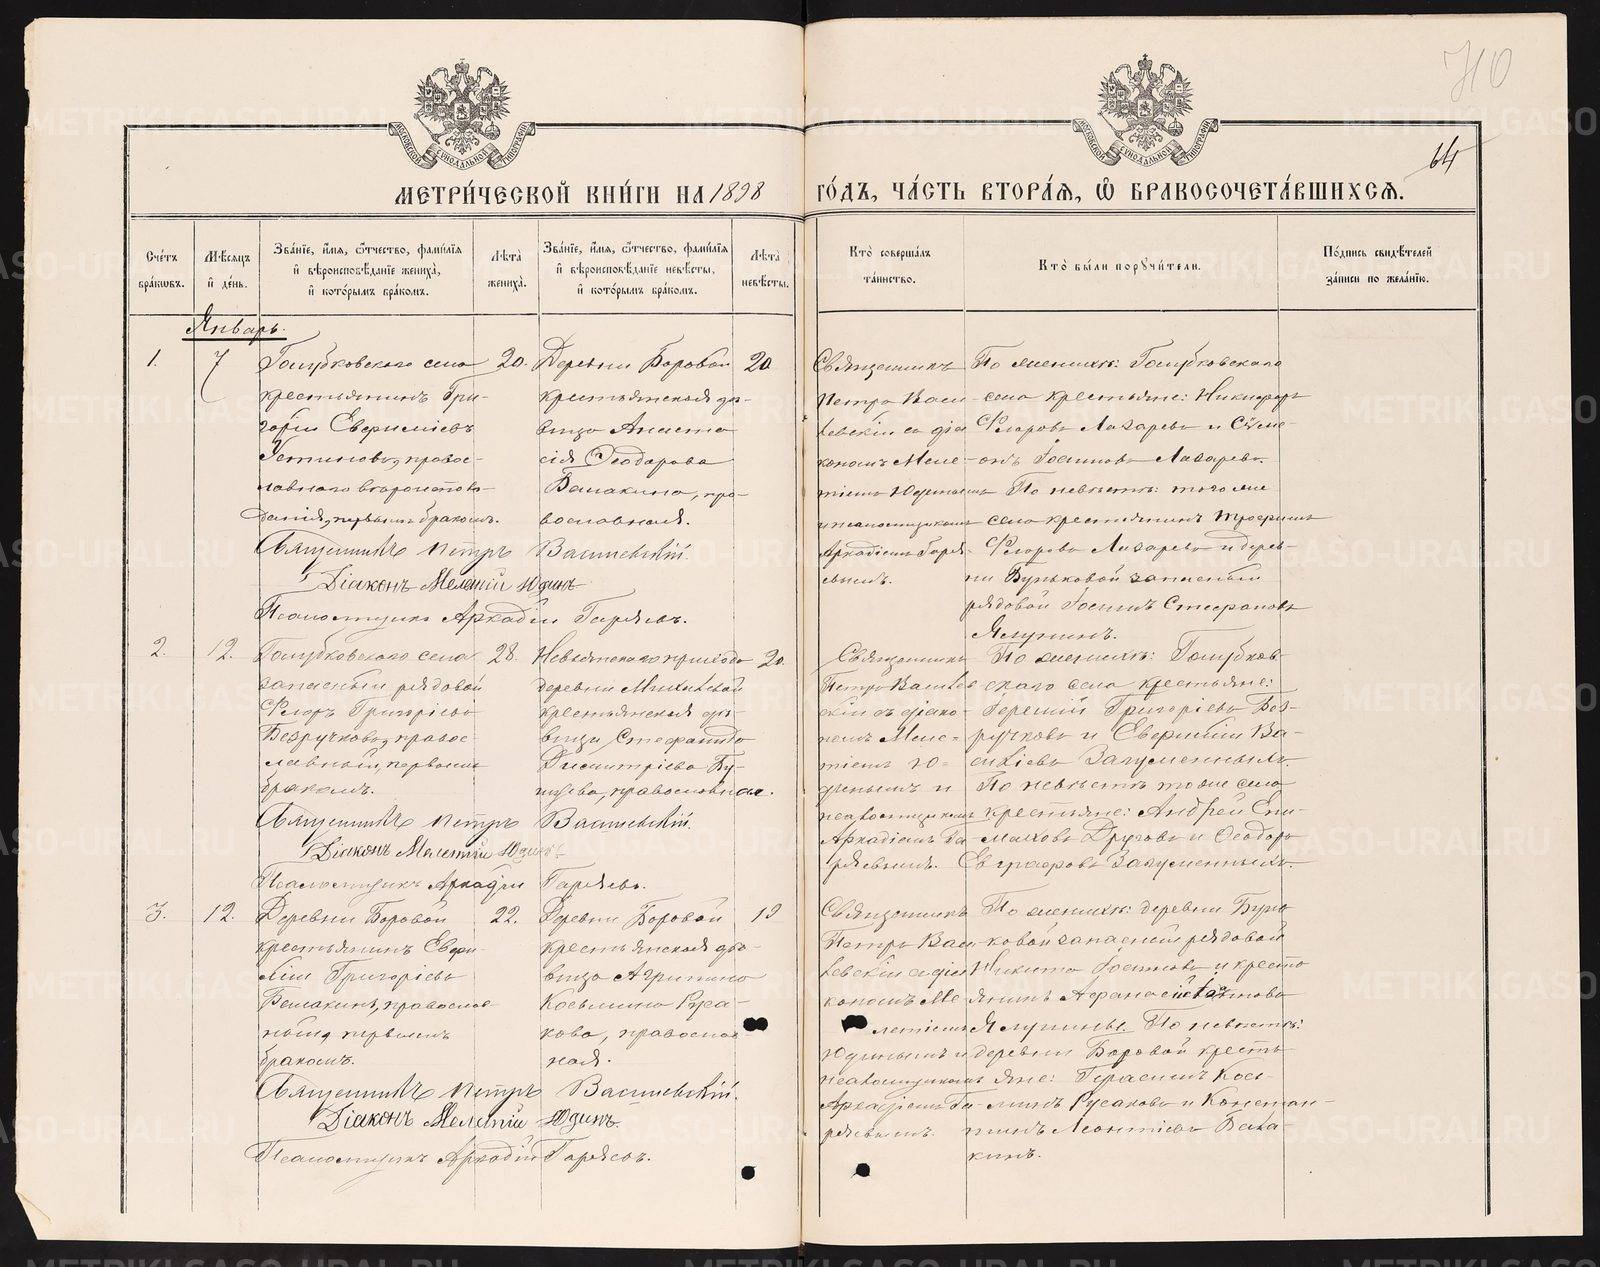 710
64
МОСКОВСКОЙ СУНОДАЛЬНОЙ ТИПОГРАФІИ
МОСКОВСКОЙ СУНОДАЛЬНОЙ ТИПОГРАФІИ
МЕТРИ́ЧЕСКОЙ КНИ́ГИ НА 1898 ГО́ДЪ, ЧА́СТЬ ВТОРА́Я, Ѡ БРАКОСОЧЕТА́ВШИХСЯ.
Сче́тъ бра́кѡвъ.
Мѣ́сяцъ и҆ де́нь.
Зва́нїе, и҆́мя, ѻ҆́тчество, фами́лїя и҆ вѣроисповѣ́данїе жениха̀, и҆ кото́рымъ бра́комъ.
Лѣ́та жениха̀.
Зва́нїе, и҆́мя, ѻ҆́тчество, фами́лїя и҆ вѣроисповѣ́данїе невѣ́сты, и҆ кото́рымъ бра́комъ.
Лѣ́та невѣ́сты.
Кто̀ соверша́лъ та́инство.
Кто̀ бы́ли поручи́тели.
По́дпись свидѣ́телей за́писи по жела́нїю.
Январь.
1.
7
Голубковскаго села
крестьянинъ Гри-
горій Евфиміевъ
Устиновъ, правос-
лавнаго вѣроиспове-
данія, первымъ бракомъ.
20.
Деревни Боровой
крестьянская дѣ-
вица Анаста
сія Ѳеодорова
Балакина, пра-
вославная.
20
Священникъ
Петръ Васи
левскій съ діа
кономъ Меле-
тіемъ Юдинымъ
и псаломщикомъ
Аркадіемъ Гаряе-
вымъ.
По женихѣ: Голубковскаго
села крестьяне: Никифоръ
Флоровъ Лазаревъ и Сѵме-
онъ Іоанновъ Лазаревъ.
По невѣстѣ: того же
села крестьянинъ Трофимъ
Флоровъ Лазаревъ и дерев-
ни Буньковой запасный
рядовой Іоаннъ Стефановъ
Ялунинъ.
Священникъ Петръ Василевскій.
Діаконъ Мелетій Юдинъ
Псаломщикъ Аркадій Гаряевъ.
2.
12.
Голубковскаго села
запасный рядовой
Флоръ Григорьевъ
Безручковъ, правос
лавный, первымъ
бракомъ.
28.
Невьянскаго прихода
деревни Михалевой
крестьянская дѣ-
вица Стефанида
Димитріева Бу-
шуева, православная.
20.
Священникъ
Петръ Василев
скій съ діако-
номъ Меле-
тіемъ Ю-
динымъ и
псаломщикомъ
Аркадіемъ Га-
ряевымъ.
По женихѣ: Голубков-
скаго села крестьяне:
Терентій Григорьевъ Без-
ручковъ и Евфимій Ва-
силіевъ Загуменныхъ.
По невѣстѣ тоже села
крестьяне: Андрей Епи-
маховъ Друговъ и Ѳеодоръ
Евграфовъ Загуменныхъ.
Священникъ Петръ Василевскій.
Діаконъ Мелетій Юдинъ
Псаломщикъ Аркадій Гаряевъ.
3.
12.
Деревни Боровой
крестьянинъ Евфи-
мій Григорьевъ
Балакинъ, православ
ный, первымъ
бракомъ.
22.
Деревни Боровой
крестьянская дѣ-
вица Агрипина
Косьмина Руса-
кова, православ
ная.
19
Священникъ
Петръ Васи-
левскій съ діа
кономъ Ме
летіемъ
Юдинымъ и
псаломщикомъ
Аркадіемъ Га-
ряевымъ.
По женихѣ: деревни Бунь
ковой запасный рядовой
Никита Іоанновъ и кресть
янинъ Афанасій
Ялунины. По невѣстѣ:
деревни Боровой кресть
яне: Герасимъ Кось-
минъ Русаковъ и Констан-
тинъ Леонтіевъ Бала-
кинъ.
Священникъ Петръ Василевскій.
Діаконъ Мелетій Юдинъ.
Псаломщикъ Аркадій Гаряевъ.
METRIKI.GASO-URAL.RU